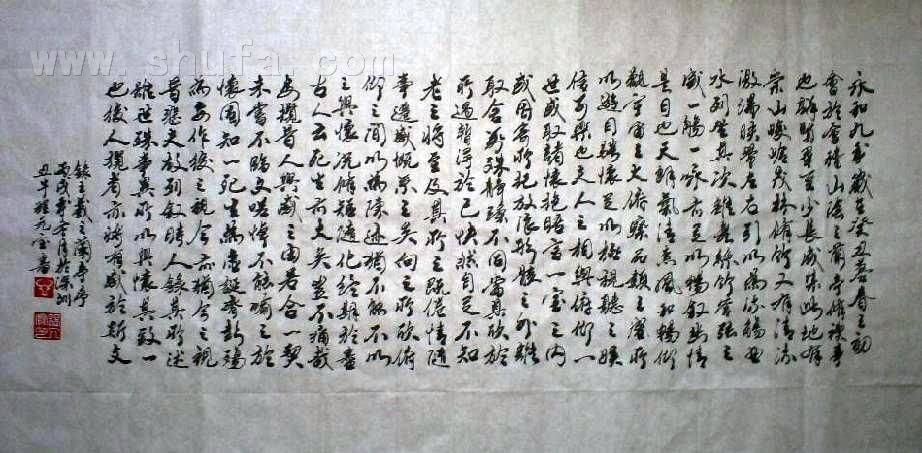 www.shufa.com
永和九年歲在癸丑暮春之初
會於會稽山陰之蘭亭修禊事
也群賢畢至少長咸集此地有
崇山峻嶺茂林修竹又有清流
激湍映帶左右引以為流觴曲
水列坐其次雖無絲竹管弦之
盛一觴一詠亦足以暢敘幽情
是日也天朗氣清惠風和暢仰
觀宇宙之大俯察品類之盛所
以遊目騁懷足以極視聽之娛
信可樂也夫人之相與俯仰一
世或取諸懷抱晤言一室之內
或因寄所託放浪形骸之外雖
取舍萬殊靜躁不同當其欣於
所遇暫得於己快然自足不知
老之將至及其所之既倦情隨
事遷感慨係之矣向之所欣俯
仰之間以為陳迹猶不能不以
之興懷況修短隨化終期於盡
古人云死生亦大矣豈不痛哉
每攬昔人興感之由若合一契
未嘗不臨文嗟悼不能喻之於
懷固知一死生為虛誕齊彭殤
為妄作後之視今亦猶今之視
昔悲夫故列敘時人錄其所述
雖世殊事異所以興懷其致一
也後人攬者亦將有感於斯文
錄王羲之蘭亭序
丙戌年月於深圳
書